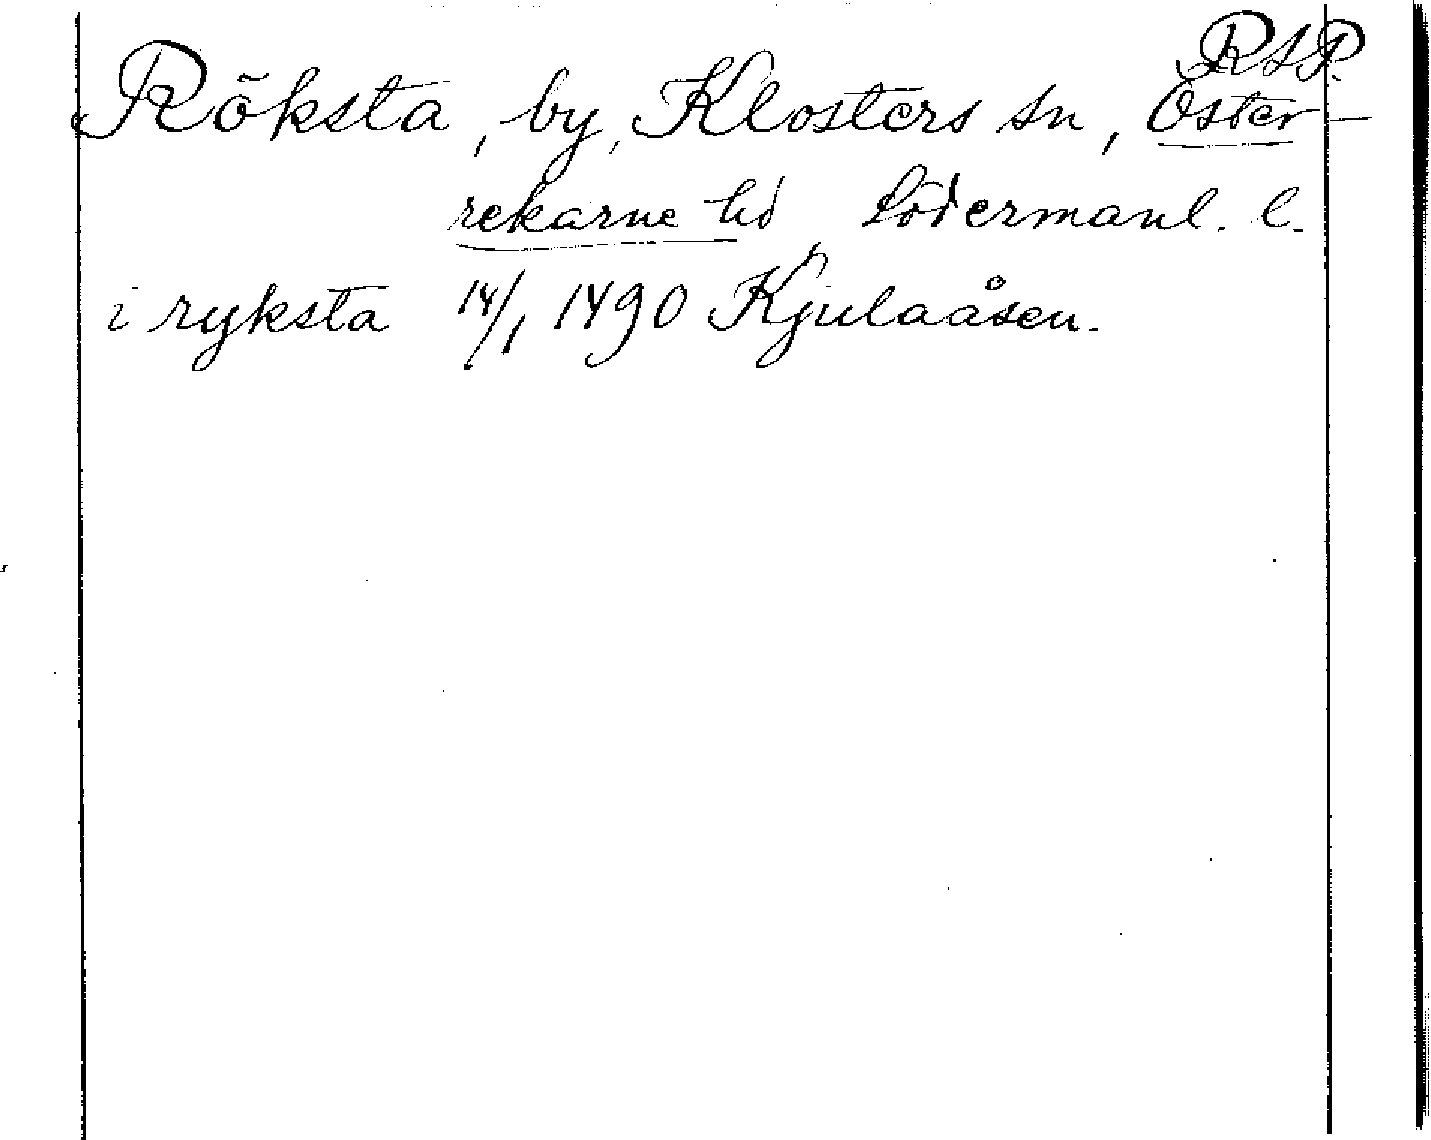 RAP.
Röksta, by, Klosters sn, Öster-
rekarne hd Södermanl. l.
i ryksta 14/1 1490 Kjulaåsen.